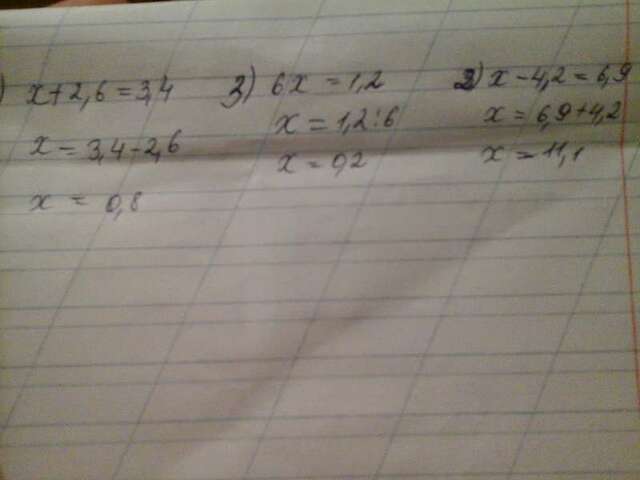 ) x+2,6=3,4
x=3,4-2,6
x=0,8
3) 6x=1,2
x=1,2:6
x=0,2
2) x-4,2=6,9
x=6,9+4,2
x=11,1